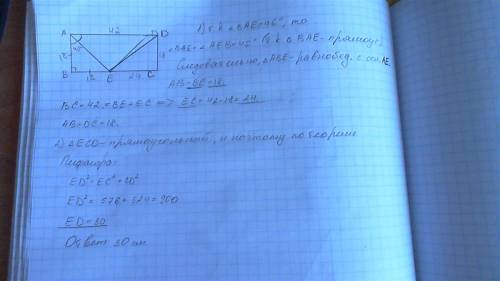 A 42 D
45
18
B 18 E 24 C
1) т.к ∠BAE=45°, то
∠BAE=∠AEB=45° (т.к ∆ BAE- прямоуг.)
Следовательно, ∆ABE- равнобед. с осн AE.
AB=BE=18.
BC=42=BE+EC => EC=42-18=24
AB=DC=18.
2) ∆ECD- прямоугольный, и поэтому по теореме
Пифагора:
ED²=EC²+CD²
ED²=576+324=900
ED=30
Ответ 30